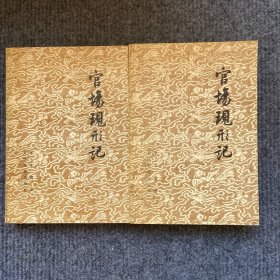 官场现形记
官场现形记